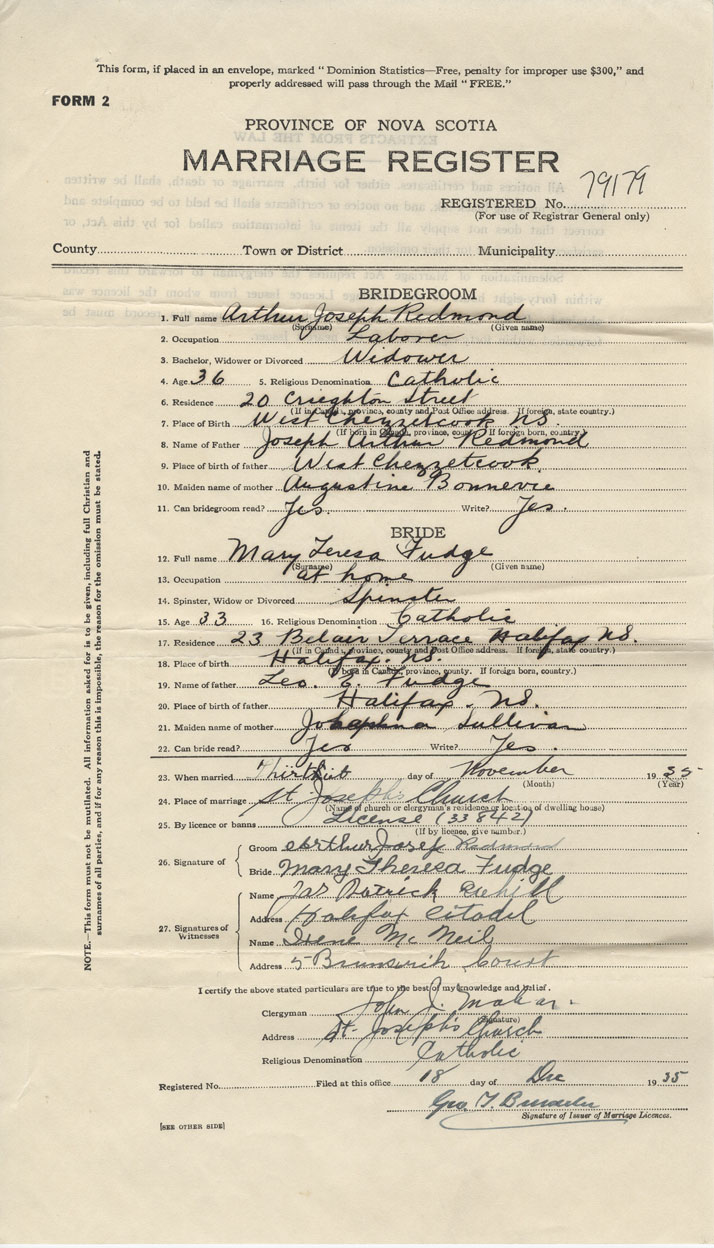 This form, if placed in an envelope, marked “ Dominion Statistics—Free, penalty for improper use $300,” and
properly addressed will pass through the Mail “ FREE.”
FORM 2
PROVINCE OF NOVA SCOTIA
MARRIAGE REGISTER
REGISTERED No. 79179
(For use of Registrar General only)
County Town or District Municipality
BRIDEGROOM
1. Full name Arthur Joseph Redmond
(Surname) (Given name)
2. Occupation Laborer
3. Bachelor, Widower or Divorced Widower
4. Age 36 5. Religious Denomination Catholic
6. Residence 20 Creighton Street
(If in Canada, province, county and Post Office address. If foreign, state country.)
7. Place of Birth West Chezzetcook NS.
(If born in Canada, province, county. If foreign born, country.)
8. Name of Father Joseph Arthur Redmond
9. Place of birth of father West Chezzetcook.
10. Maiden name of mother Augustine Bonnevie
11. Can bridegroom read? Yes. Write? Yes.
BRIDE
12. Full name Mary Teresa Fudge
(Surname) (Given name)
13. Occupation at home
14. Spinster, Widow or Divorced Spinster
15. Age 33 16. Religious Denomination Catholic
17. Residence 23 Belair Terrace Halifax NS.
(If in Canada, province, county and Post Office address. If foreign, state country.)
18. Place of birth Halifax. NS.
(If born in Canada, province, county. If foreign born, country.)
19. Name of father Leo. E. Fudge
20. Place of birth of father Halifax. NS.
21. Maiden name of mother Josephina Sullivan
22. Can bride read? Yes Write? Yes.
23. When married day of November 1935
(Month) (Year)
24. Place of marriage St Joseph's Church
(Name of church or clergyman's residence or location of dwelling house)
25. By licence or banns License (33842)
(If by licence, give number.)
26. Signature of
Groom Arthur Josef Redmond
Bride Mary Theresa Fudge
27. Signatures of Witnesses
Name Jas Patrick
Address Halifax Citadel
Name Irene McNeil
Address 5 Brunswick Court
I certify the above stated particulars are true to the best of my knowledge and belief.
Clergyman John J.
(Signature)
Address St. Joseph's Church
Religious Denomination Catholic
Registered No. Filed at this office 18 day of Dec 1935
Geo. T.
Signature of Issuer of Marriage Licences.
[SEE OTHER SIDE]
NOTE.—This form must not be mutilated. All information asked for is to be given, including full Christian and
surnames of all parties, and if for any reason this is impossible, the reason for the omission must be stated.